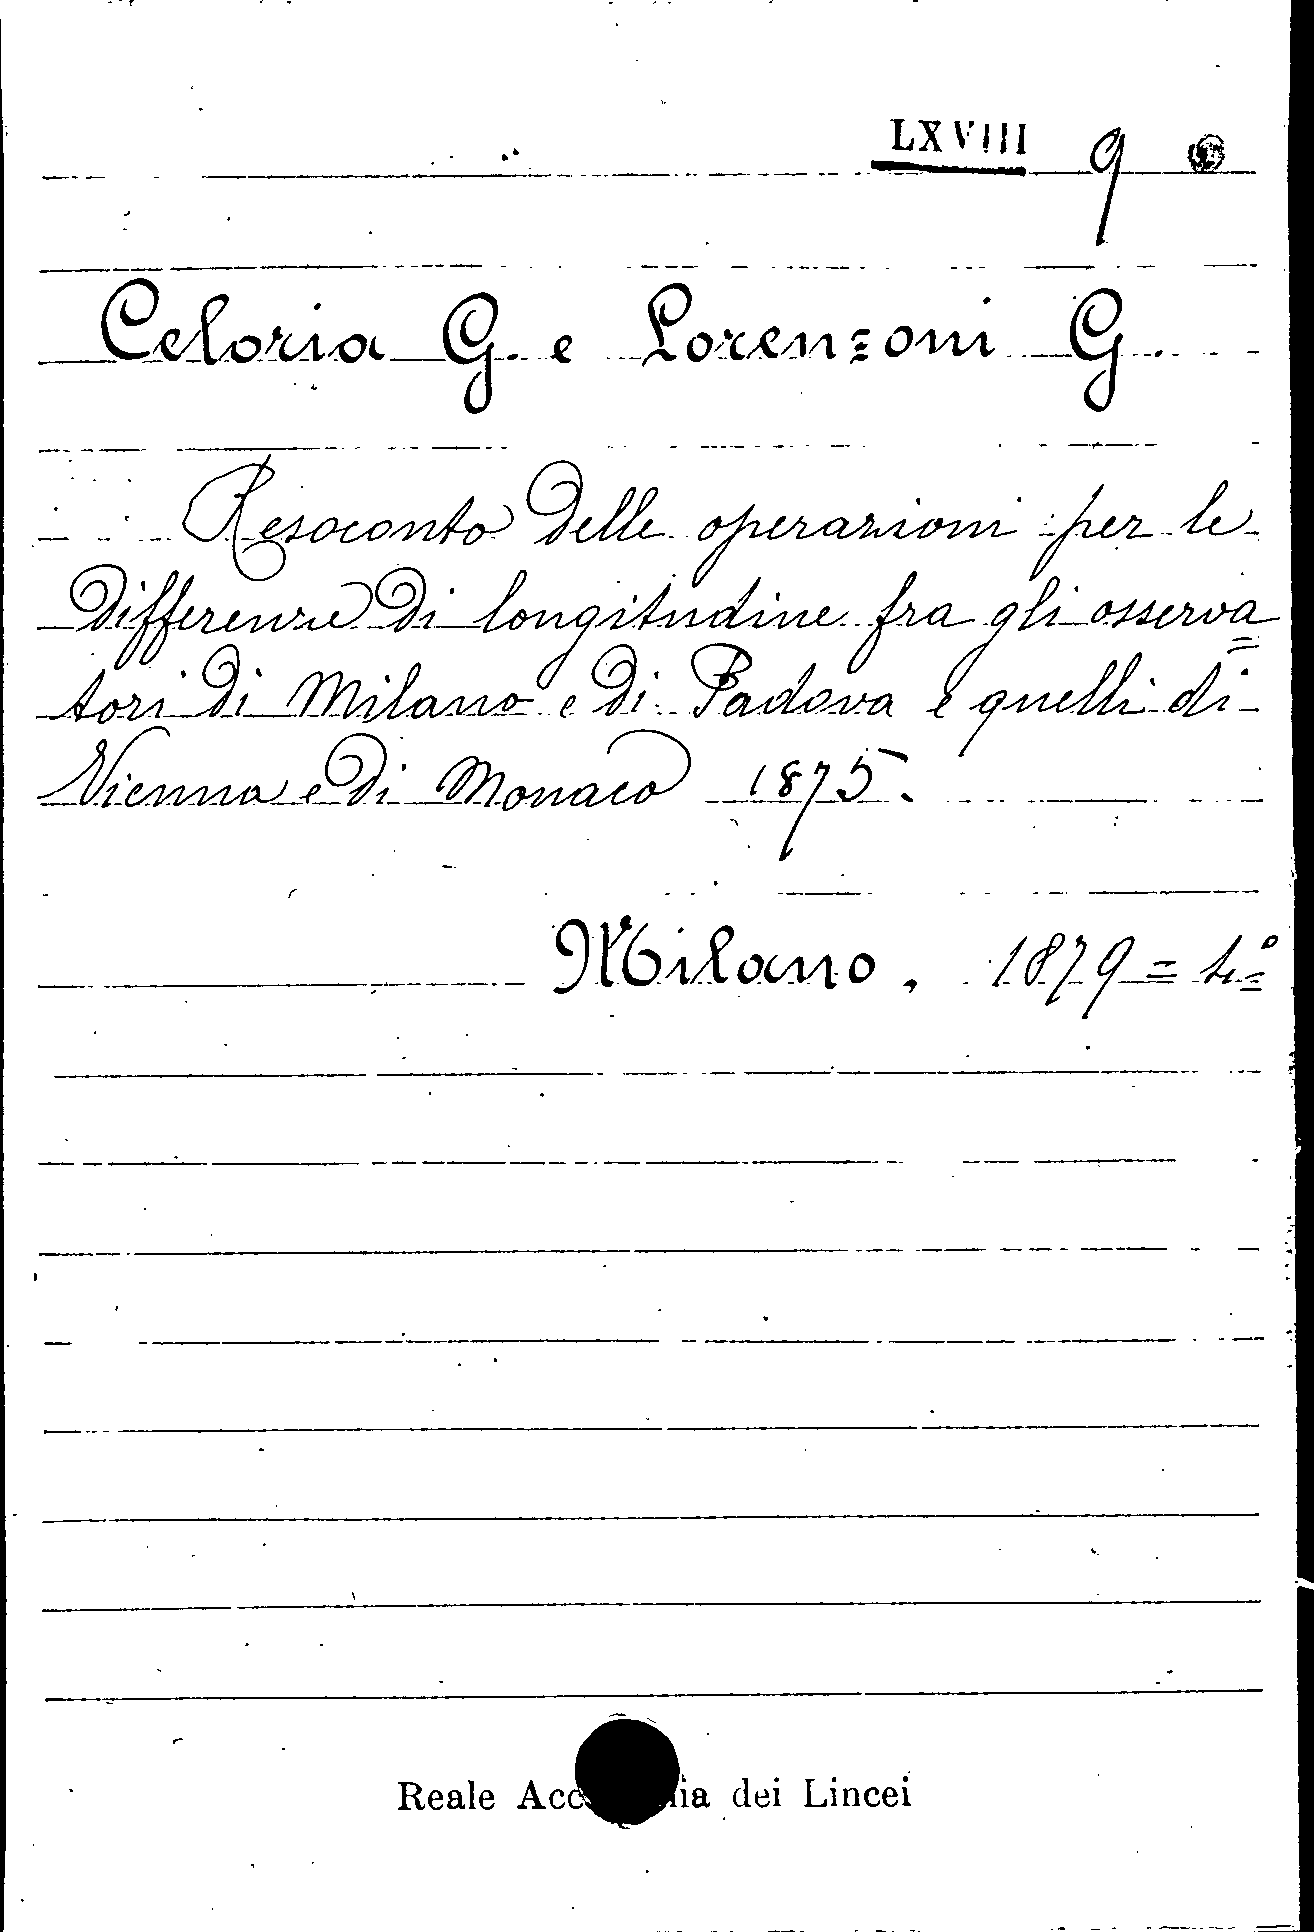 LXVIII 9
Celoria G. e Lorenzoni G.
Resoconto delle operazioni per le
differenze di longitudine fra gli osserva=
tori di Milano e di Padova e quelli di
Vienna e di Monaco 1875.
Milano, 1879 = 4°=
Reale Acc ia dei Lincei